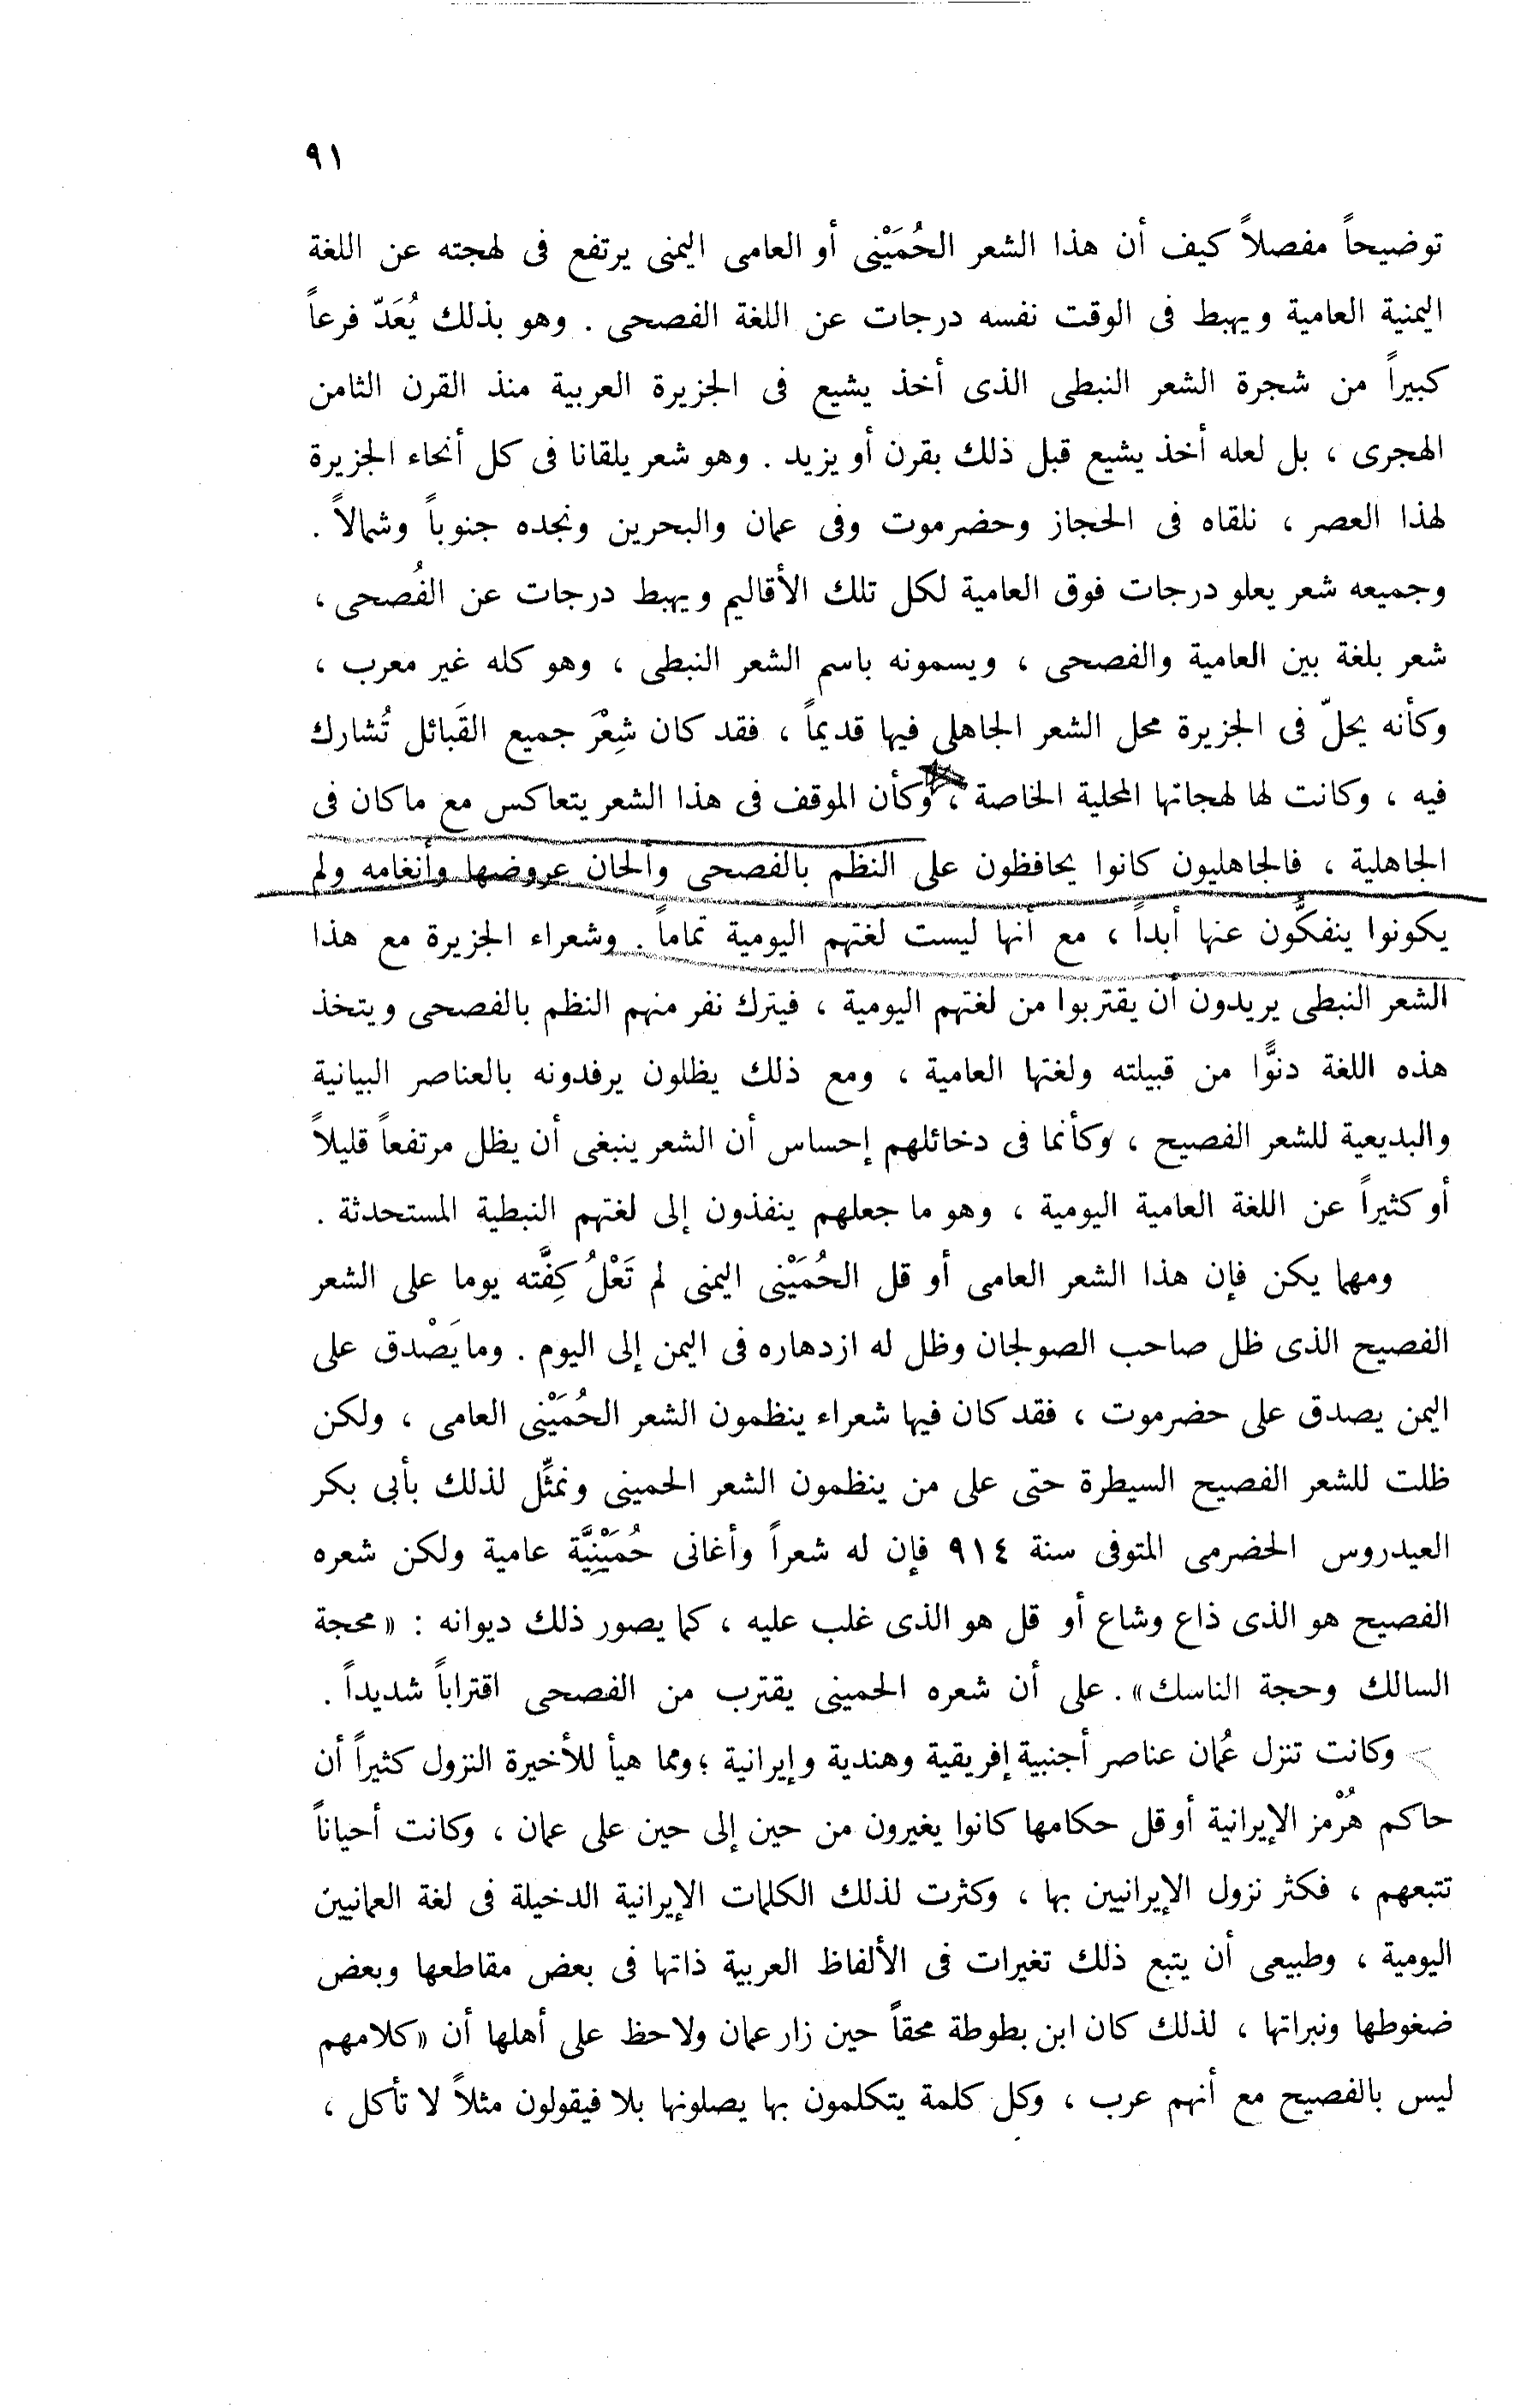 ٩١
توضيحاً مفصلاً كيف أن هذا الشعر الحُمَيْنى أو العامى اليمنى يرتفع فى لهجته عن اللغة
اليمنية العامية ويهبط فى الوقت نفسه درجات عن اللغة الفصحى . وهو بذلك يُعَدّ فرعاً
كبيراً من شجرة الشعر النبطى الذى أخذ يشيع فى الجزيرة العربية منذ القرن الثامن
الهجرى ، بل لعله أخذ يشيع قبل ذلك بقرن أو يزيد . وهو شعر يلقانا فى كل أنحاء الجزيرة
لهذا العصر ، نلقاه فى الحجاز وحضرموت وفى عمان والبحرين ونجده جنوباً وشمالاً .
وجميعه شعر يعلو درجات فوق العامية لكل تلك الأقاليم ويهبط درجات عن الفُصحى ،
شعر بلغة بين العامية والفصحى ، ويسمونه باسم الشعر النبطى ، وهو كله غير معرب ،
وكأنه يحلّ فى الجزيرة محل الشعر الجاهلى فيها قديماً ، فقد كان شِعْر جميع القَبائل تُشارك
فيه ، وكانت لها لهجاتها المحلية الخاصة ، وكأن الموقف فى هذا الشعر يتعاكس مع ماكان فى
الجاهلية ، فالجاهليون كانوا يحافظون على النظم بالفصحى وألحان عروضها وأنغامه ولم
يكونوا ينفكُّون عنها أبداً ، مع أنها ليست لغتهم اليومية تماماً . وشعراء الجزيرة مع هذا
الشعر النبطى يريدون أن يقتربوا من لغتهم اليومية ، فيترك نفر منهم النظم بالفصحى ويتخذ
هذه اللغة دنوًّا من قبيلته ولغتها العامية ، ومع ذلك يظلون يرفدونه بالعناصر البيانية
والبديعية للشعر الفصيح ، وكأنما فى دخائلهم إحساس أن الشعر ينبغى أن يظل مرتفعاً قليلاً
أو كثيراً عن اللغة العامية اليومية ، وهو ما جعلهم ينفذون إلى لغتهم النبطية المستحدثة .
ومهما يكن فإن هذا الشعر العامى أو قل الحُمَيْنى اليمنى لم تَعْلُ كِفَّته يوما على الشعر
الفصيح الذى ظل صاحب الصولجان وظل له ازدهاره فى اليمن إلى اليوم . ومايَصْدق على
اليمن يصدق على حضرموت ، فقد كان فيها شعراء ينظمون الشعر الحُمَيْنى العامى ، ولكن
ظلت للشعر الفصيح السيطرة حتى على من ينظمون الشعر الحمينى ونمثِّل لذلك بأبى بكر
العيدروس الحضرمى المتوفى سنة ٩١٤ فإن له شعراً وأغانى حُمَيْنِيَّة عامية ولكن شعره
الفصيح هو الذى ذاع وشاع أو قل هو الذى غلب عليه ، كما يصور ذلك ديوانه : « محجة
السالك وحجة الناسك » . على أن شعره الحمينى يقترب من الفصحى اقتراباً شديداً .
وكانت تنزل عُمان عناصر أجنبية إفريقية وهندية وإيرانية ؛ ومما هيأ للأخيرة النزول كثيراً أن
حاكم هُرْمز الإيرانية أو قل حكامها كانوا يغيرون من حين إلى حين على عمان ، وكانت أحياناً
تتبعهم ، فكثر نزول الإيرانيين بها ، وكثرت لذلك الكلمات الإيرانية الدخيلة فى لغة العمانيين
اليومية ، وطبيعى أن يتبع ذلك تغيرات فى الألفاظ العربية ذاتها فى بعض مقاطعها وبعض
ضغوطها ونبراتها ، لذلك كان ابن بطوطة محقاً حين زار عمان ولاحظ على أهلها أن « كلامهم
ليس بالفصيح مع أنهم عرب ، وكل كلمة يتكلمون بها يصلونها بلا فيقولون مثلاً لا تأكل ،